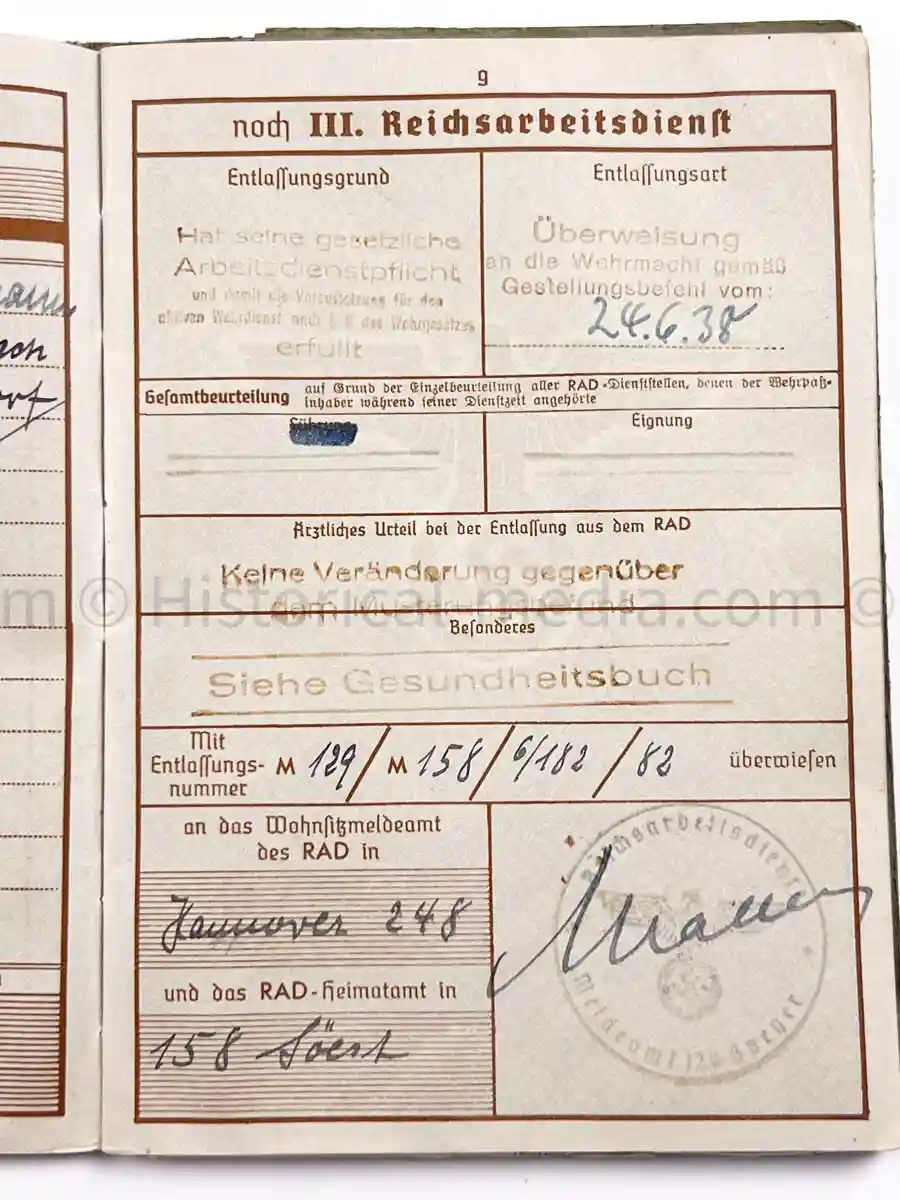 9
noch III. Reichsarbeitsdienst
Entlassungsgrund
Hat seine gesetzliche
Arbeitsdienstpflicht
und damit die Voraussetzung für den
aktiven Wehrdienst nach § 8 des Wehrgesetzes
erfüllt
Entlassungsart
Überweisung
an die Wehrmacht gemäß
Gestellungsbefehl vom:
24.6.38
Gesamtbeurteilung auf Grund der Einzelbeurteilung aller RAD-Dienststellen, denen der Wehrpaß-
inhaber während seiner Dienstzeit angehörte
Führung
Eignung
Ärztliches Urteil bei der Entlassung aus dem RAD
Keine Veränderung gegenüber
dem Musterungsbefund
Besonderes
Siehe Gesundheitsbuch
Mit
Entlassungs-
nummer
M 129/M 158/6/182/82
überwiesen
an das Wohnsitzmeldeamt
des RAD in
Hannover 248
und das RAD-Heimatamt in
158 Söest
Reichsarbeitsdienst
Meldeamt
© Historical-media.com ©